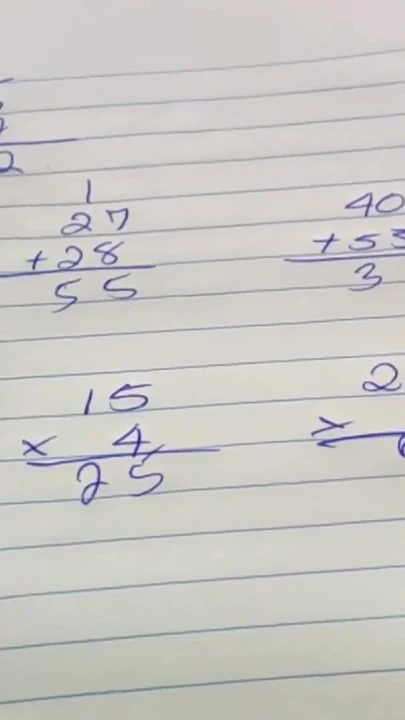 2
1
27
+ 28
55
40
+ 53
3
15
x 4
25
2
x